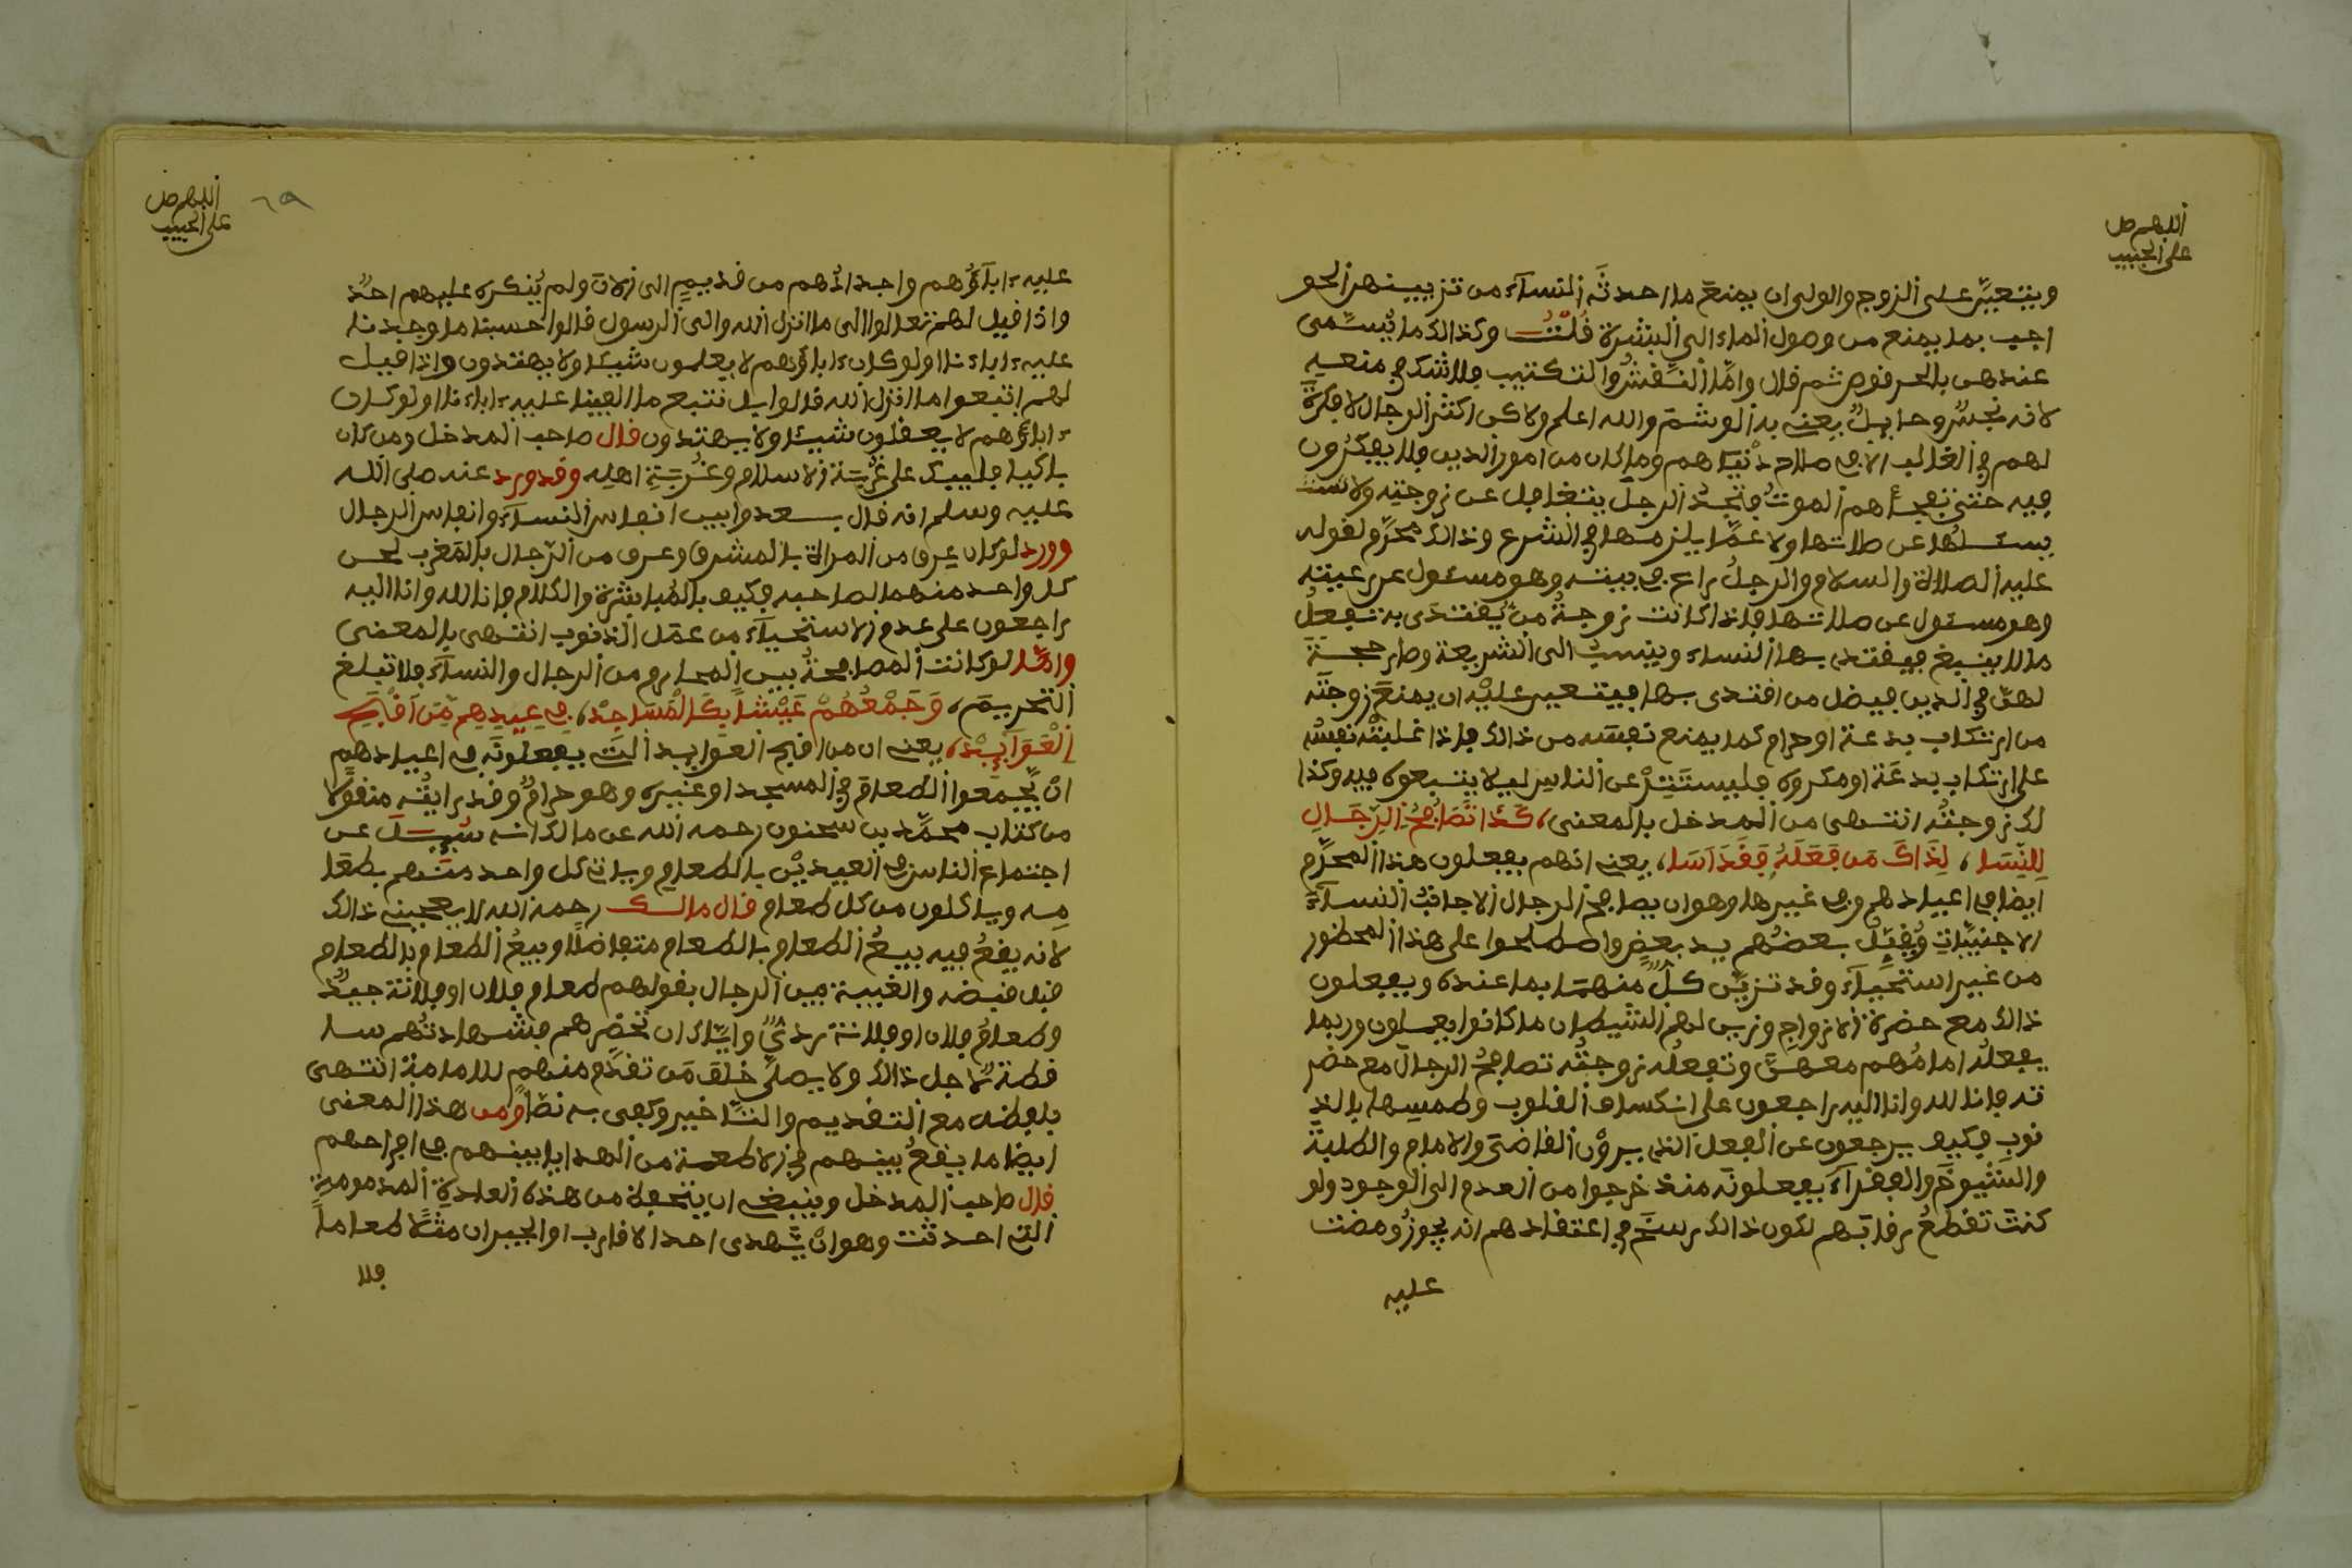 اللهم صل
على الحبيب
ويتعين على الزوج والولى ان يمنع ما احدثه النساء من تزيينهن الحو
اجب بما يمنع من وصول الماء الى البشرة قلت وكذالك ما يسمى
عندهن بالحرقوص ثم قال واما النقش والتكتيب فلا شك في منعه
لانه نجس وحايل يعنى به الوشم والله اعلم ولاكن اكثر الرجال لا فكرة
لهم في الغالب الا في صلاح دنياهم وما كان من امور الدين فلا يفكرون
فيه حتى تفجأهم الموت فاتجد الرجل يتغافل عن زوجته ولا
يسئلها عن صلاتها ولا عما يلزمها في الشرع وذالك محرم لقوله
عليه الصلاة والسلام والرجل راع في بيته وهو مسئول عن رعيته
وهو مسئول عن صلاتها فاذا كانت زوجة من يقتدى به تفعل
ما لا ينبغى فيقتدى بها النساء وينسب الى الشريعة وصار حجة
لهن في الدين فيضل من اقتدى بها فيتعين عليه ان يمنع زوجته
من ارتكاب بدعة او حرام كما يمنع نفسه من ذالك فاذا غلبته نفسه
على ارتكاب بدعة او مكروه فليستتر عن الناس ليلا يتبعوه فيه وكذا
لك زوجته انتهى من المدخل بالمعنى، كذا تصافح الرجال
للنسا، لذاك من فعله فقد اسا، يعنى انهم يفعلون هذا المحرم
ايضا في اعيادهم وفي غيرها وهو ان يصافح الرجال الاجانب النساء
الاجنبيات ويقبل بعضهم يد بعض واصطلحوا على هذا المحظور
من غير استحياء وقد تزين كل منهما بما عنده ويفعلون
ذالك مع حضرة الازواج وزين لهم الشيطان ما كانوا يعملون وربما
يفعله امامهم معهن وتفعله زوجته تصافح الرجال مع حضر
ته فانا لله وانا اليه راجعون على انكساف القلوب وطمسها بالذ
نوب فكيف يرجعون عن الفعل الذي يرون القاضى والامام والطلبة
والشيوخ والفقراء يفعلونه منذ خرجوا من العدم الى الوجود ولو
كنت تقطع رقابهم لكون ذالك رسخ في اعتقادهم انه يجوز ومضت
عليه
اللهم صل
على الحبيب
٦٩
عليه ءاباؤهم واجدادهم من قديم الى الان ولم ينكره عليهم احد
واذا قيل لهم تعالوا الى ما انزل الله والى الرسول قالوا حسبنا ما وجدنا
عليه ءاباءنا اولو كان ءاباؤهم لا يعلمون شيئا ولا يهتدون واذا قيل
لهم اتبعوا ما انزل الله قالوا بل نتبع ما الفينا عليه ءاباءنا اولو كان
ءاباؤهم لا يعقلون شيئا ولا يهتدون قال صاحب المدخل ومن كان
باكيا فليبك على غربة الاسلام وغربة اهله وقد ورد عنه صلى الله
عليه وسلم انه قال بـعدوا بين انفاس النساء وانفاس الرجال
وورد لو كان عرق من المراة بالمشرق وعرق من الرجال بالمغرب لحن
كل واحد منهما لصاحبه فكيف بالمباشرة والكلام فانا لله وانا اليه
راجعون على عدم الاستحياء من عمل الذنوب انتهى بالمعنى
واما لو كانت المصافحة بين المحارم من الرجال والنساء فلا تبلغ
التحريم، وجمعهم عيشا بكالمساجد، في عيدهم من اقبح
العوايد، يعنى ان من اقبح العوايد التى يفعلونه في اعيادهم
ان يجمعوا الطعام في المسجد او غيره وهو حرام وقد رايته منقولا
من كتاب محمد بن سحنون رحمه الله عن مالك انه سئل عن
اجتماع الناس في العيدين بالطعام وياتى كل واحد منهم بطعا
مه وياكلون من كل طعام قال مالك رحمه الله لا يعجبنى ذالك
لانه يقع فيه بيع الطعام بالطعام متفاضلا وبيع الطعام بالطعام
قبل قبضه والغيبة بين الرجال بقولهم طعام فلان او فلانة جيد
وطعام فلان او فلانة ردىّ واياك ان تحضرهم فشهادتهم سا
قطة لاجل ذالك ولا يصلى خلف من تقدم منهم للامامة انتهى
بلفظه مع التقديم والتاخير وكفى به نصا ومن هذا المعنى
ايضا ما يقع بينهم في الاطعمة من الهدايا بينهم في افراحهم
قال صاحب المدخل وينبغى ان يتحفظ من هذه العادة المذمومة
التى احدثت وهو ان يهدى احد الاقارب او الجيران مثلا طعاما
فلا